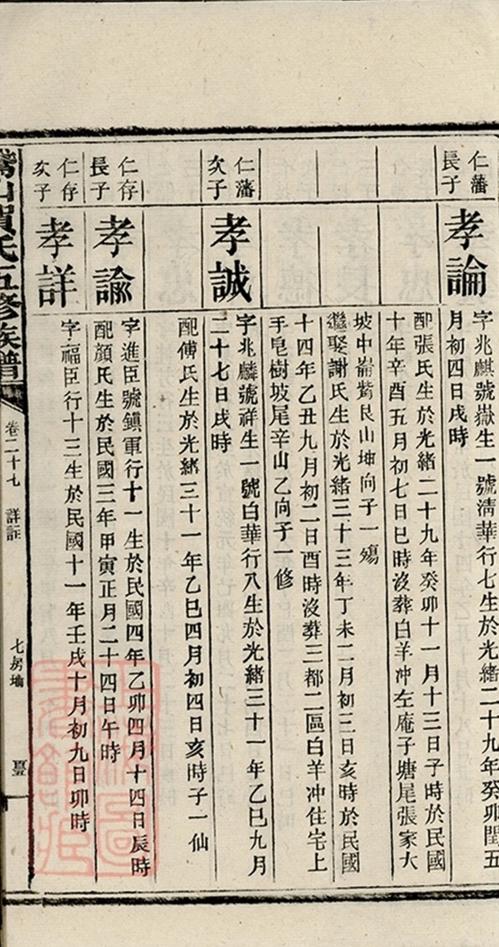 仁藩
長子
孝論
字兆麒號嶽生一號清華行七生於光緒二十九年癸卯閏五
月初四日戌時
配張氏生於光緒二十九年癸卯十一月十三日子時於民國
十年辛酉五月初七日巳時沒葬白羊冲左庵子塘尾張家大
坡中崙觜艮山坤向子一殤
繼娶謝氏生於光緒三十三年丁未二月初三日亥時於民國
十四年乙丑九月初二日酉時沒葬三都二區白羊冲住宅上
手皂樹坡尾辛山乙向子一修
仁藩
次子
孝誠
字兆麟號祥生一號白華行八生於光緒三十一年乙巳九月
二十七日戌時
配傅氏生於光緒三十一年乙巳四月初四日亥時子一仙
仁存
長子
孝諭
字進臣號鎮軍行十一生於民國四年乙卯四月十四日辰時
配顏氏生於民國三年甲寅正月二十四日午時
仁存
次子
孝詳
字福臣行十三生於民國十一年壬戌十月初九日卯時
山賀氏五修族譜
卷二十七 詳註
七房